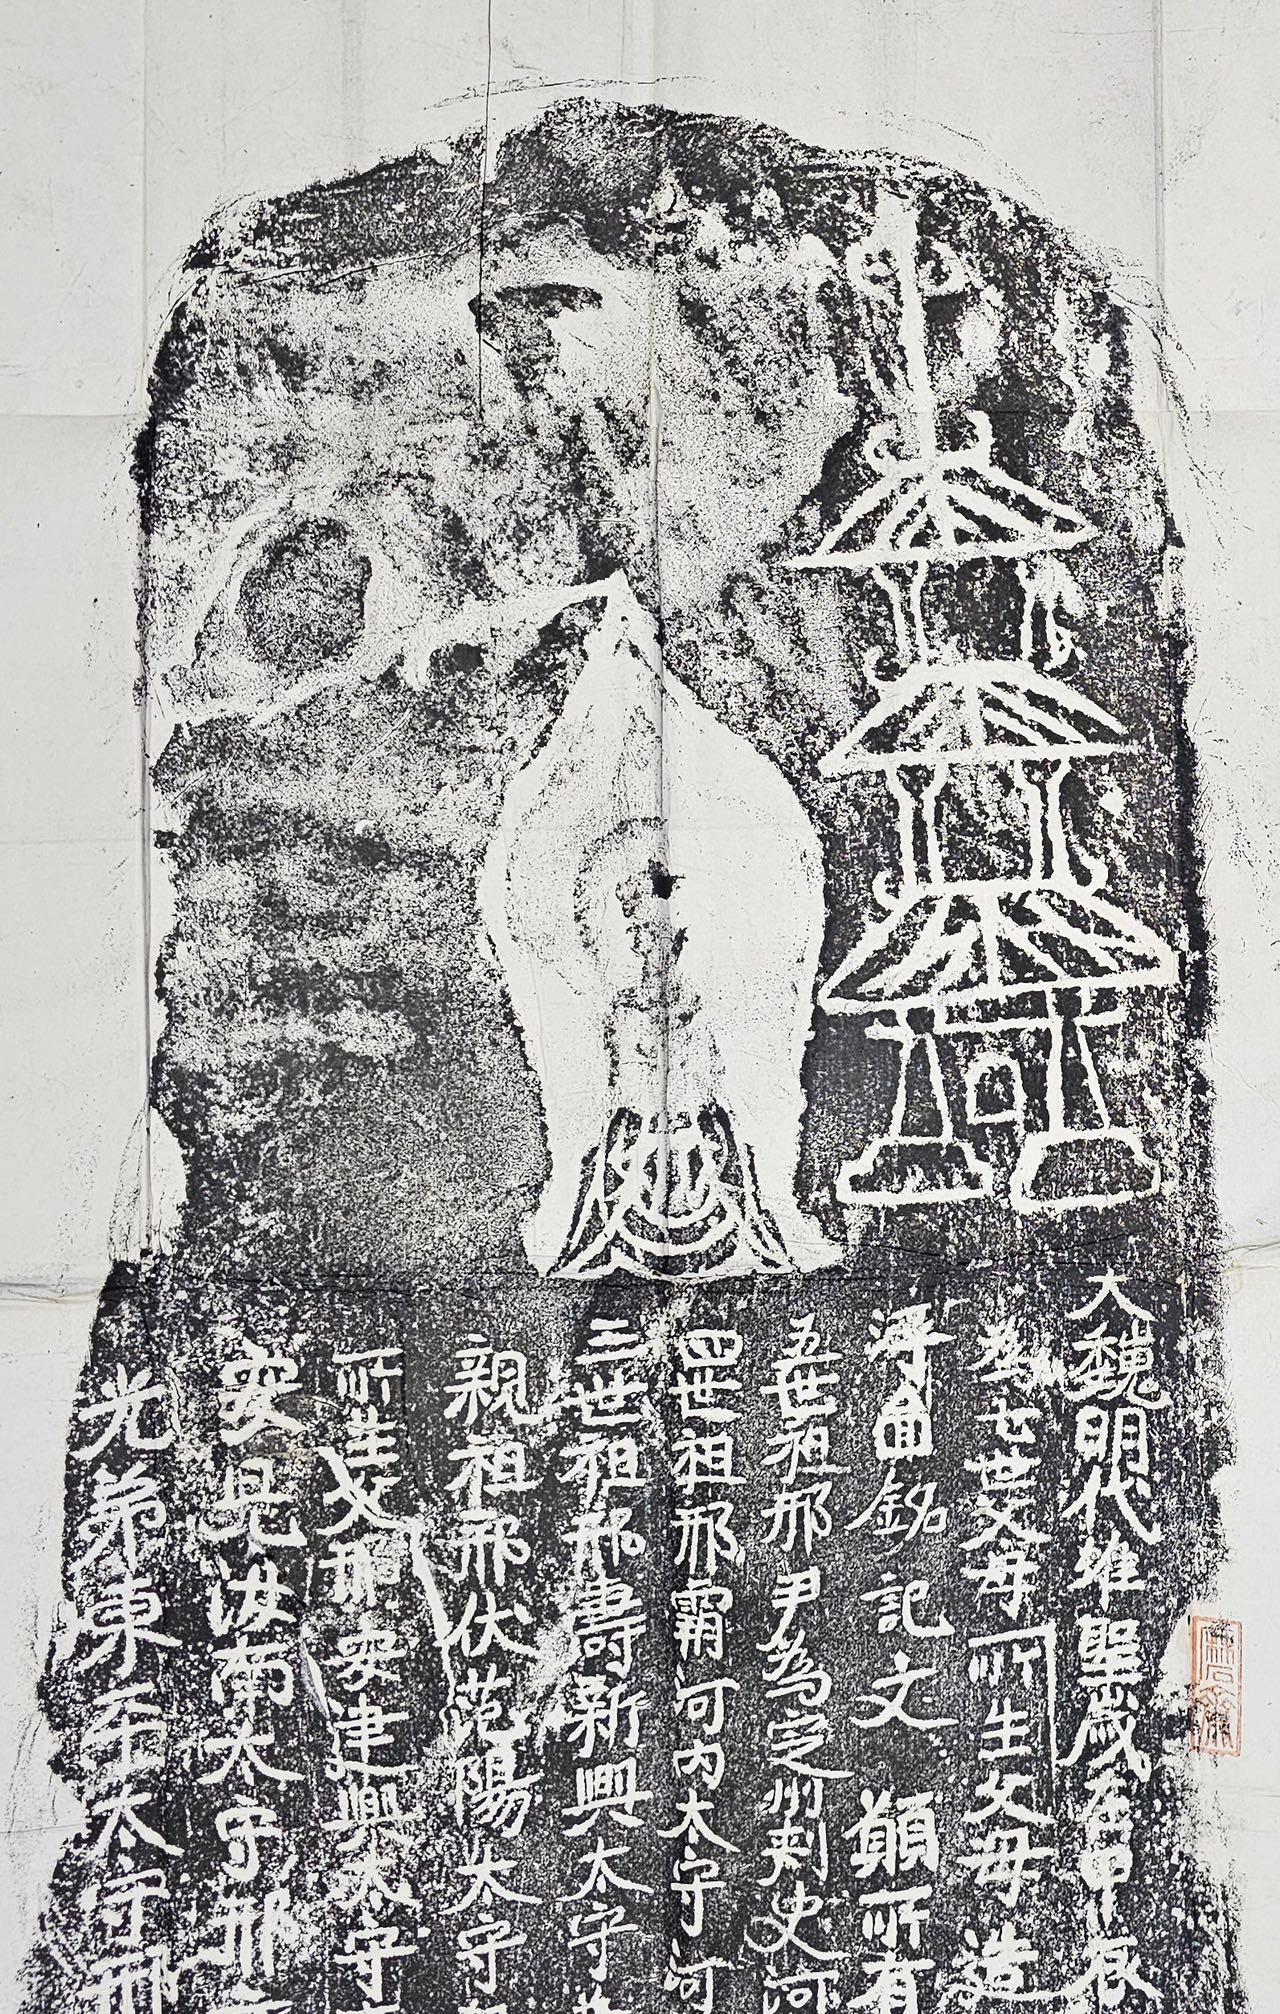 大魏明代唯聖歲在甲辰
為七世父母所生父母造
浮啚銘記文願所有
五世祖邢尹為定州刺史河
四世祖邢霸河内太守河
三世祖邢壽新興太守
親祖邢伏范陽太守
所生父邢安建興太守
安兄汝南太守邢
光弟東平太守邢